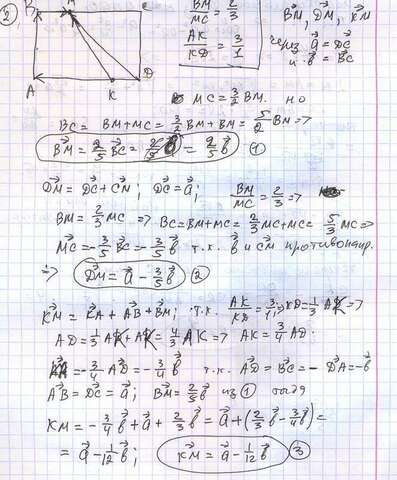 2
B M C
A K D
BM/MC = 2/3
AK/KD = 3/1
B⃗M, D⃗M, K⃗M
через a⃗ = D⃗C
и b⃗ = B⃗C
MC = 3/2 BM. но
BC = BM+MC = 3/2 BM + BM = 5/2 BM =>
B⃗M = 2/5 B⃗C = 2/5 b⃗ = 2/5 b⃗ 1
D⃗M = D⃗C + C⃗M; D⃗C = a⃗; BM/MC = 2/3 =>
BM = 2/3 MC => BC = BM+MC = 2/3 MC+MC = 5/3 MC =>
M⃗C = -3/5 B⃗C = -3/5 b⃗ т.к. b⃗ и см противонапр.
=> D⃗M = a⃗ - 3/5 b⃗ 2
K⃗M = K⃗A + A⃗B + B⃗M; т.к. AK/KD = 3/1; => KD = 1/3 AK =>
AD = 1/3 AK + AK = 4/3 AK => AK = 3/4 AD.
K⃗A = -3/4 A⃗D = -3/4 b⃗ т.к. A⃗D = B⃗C = - D⃗A = -b⃗
A⃗B = D⃗C = a⃗; B⃗M = 2/5 b⃗ из 1 тогда
KM = -3/4 b⃗ + a⃗ + 2/3 b⃗ = a⃗ + (2/3 b⃗ - 3/4 b⃗) =
= a⃗ - 1/12 b⃗; K⃗M = a⃗ - 1/12 b⃗ 3